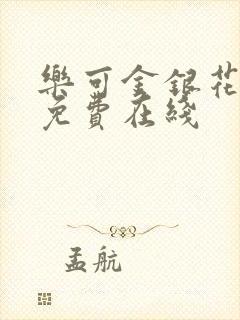 樂可金銀花
免費在綫
孟航